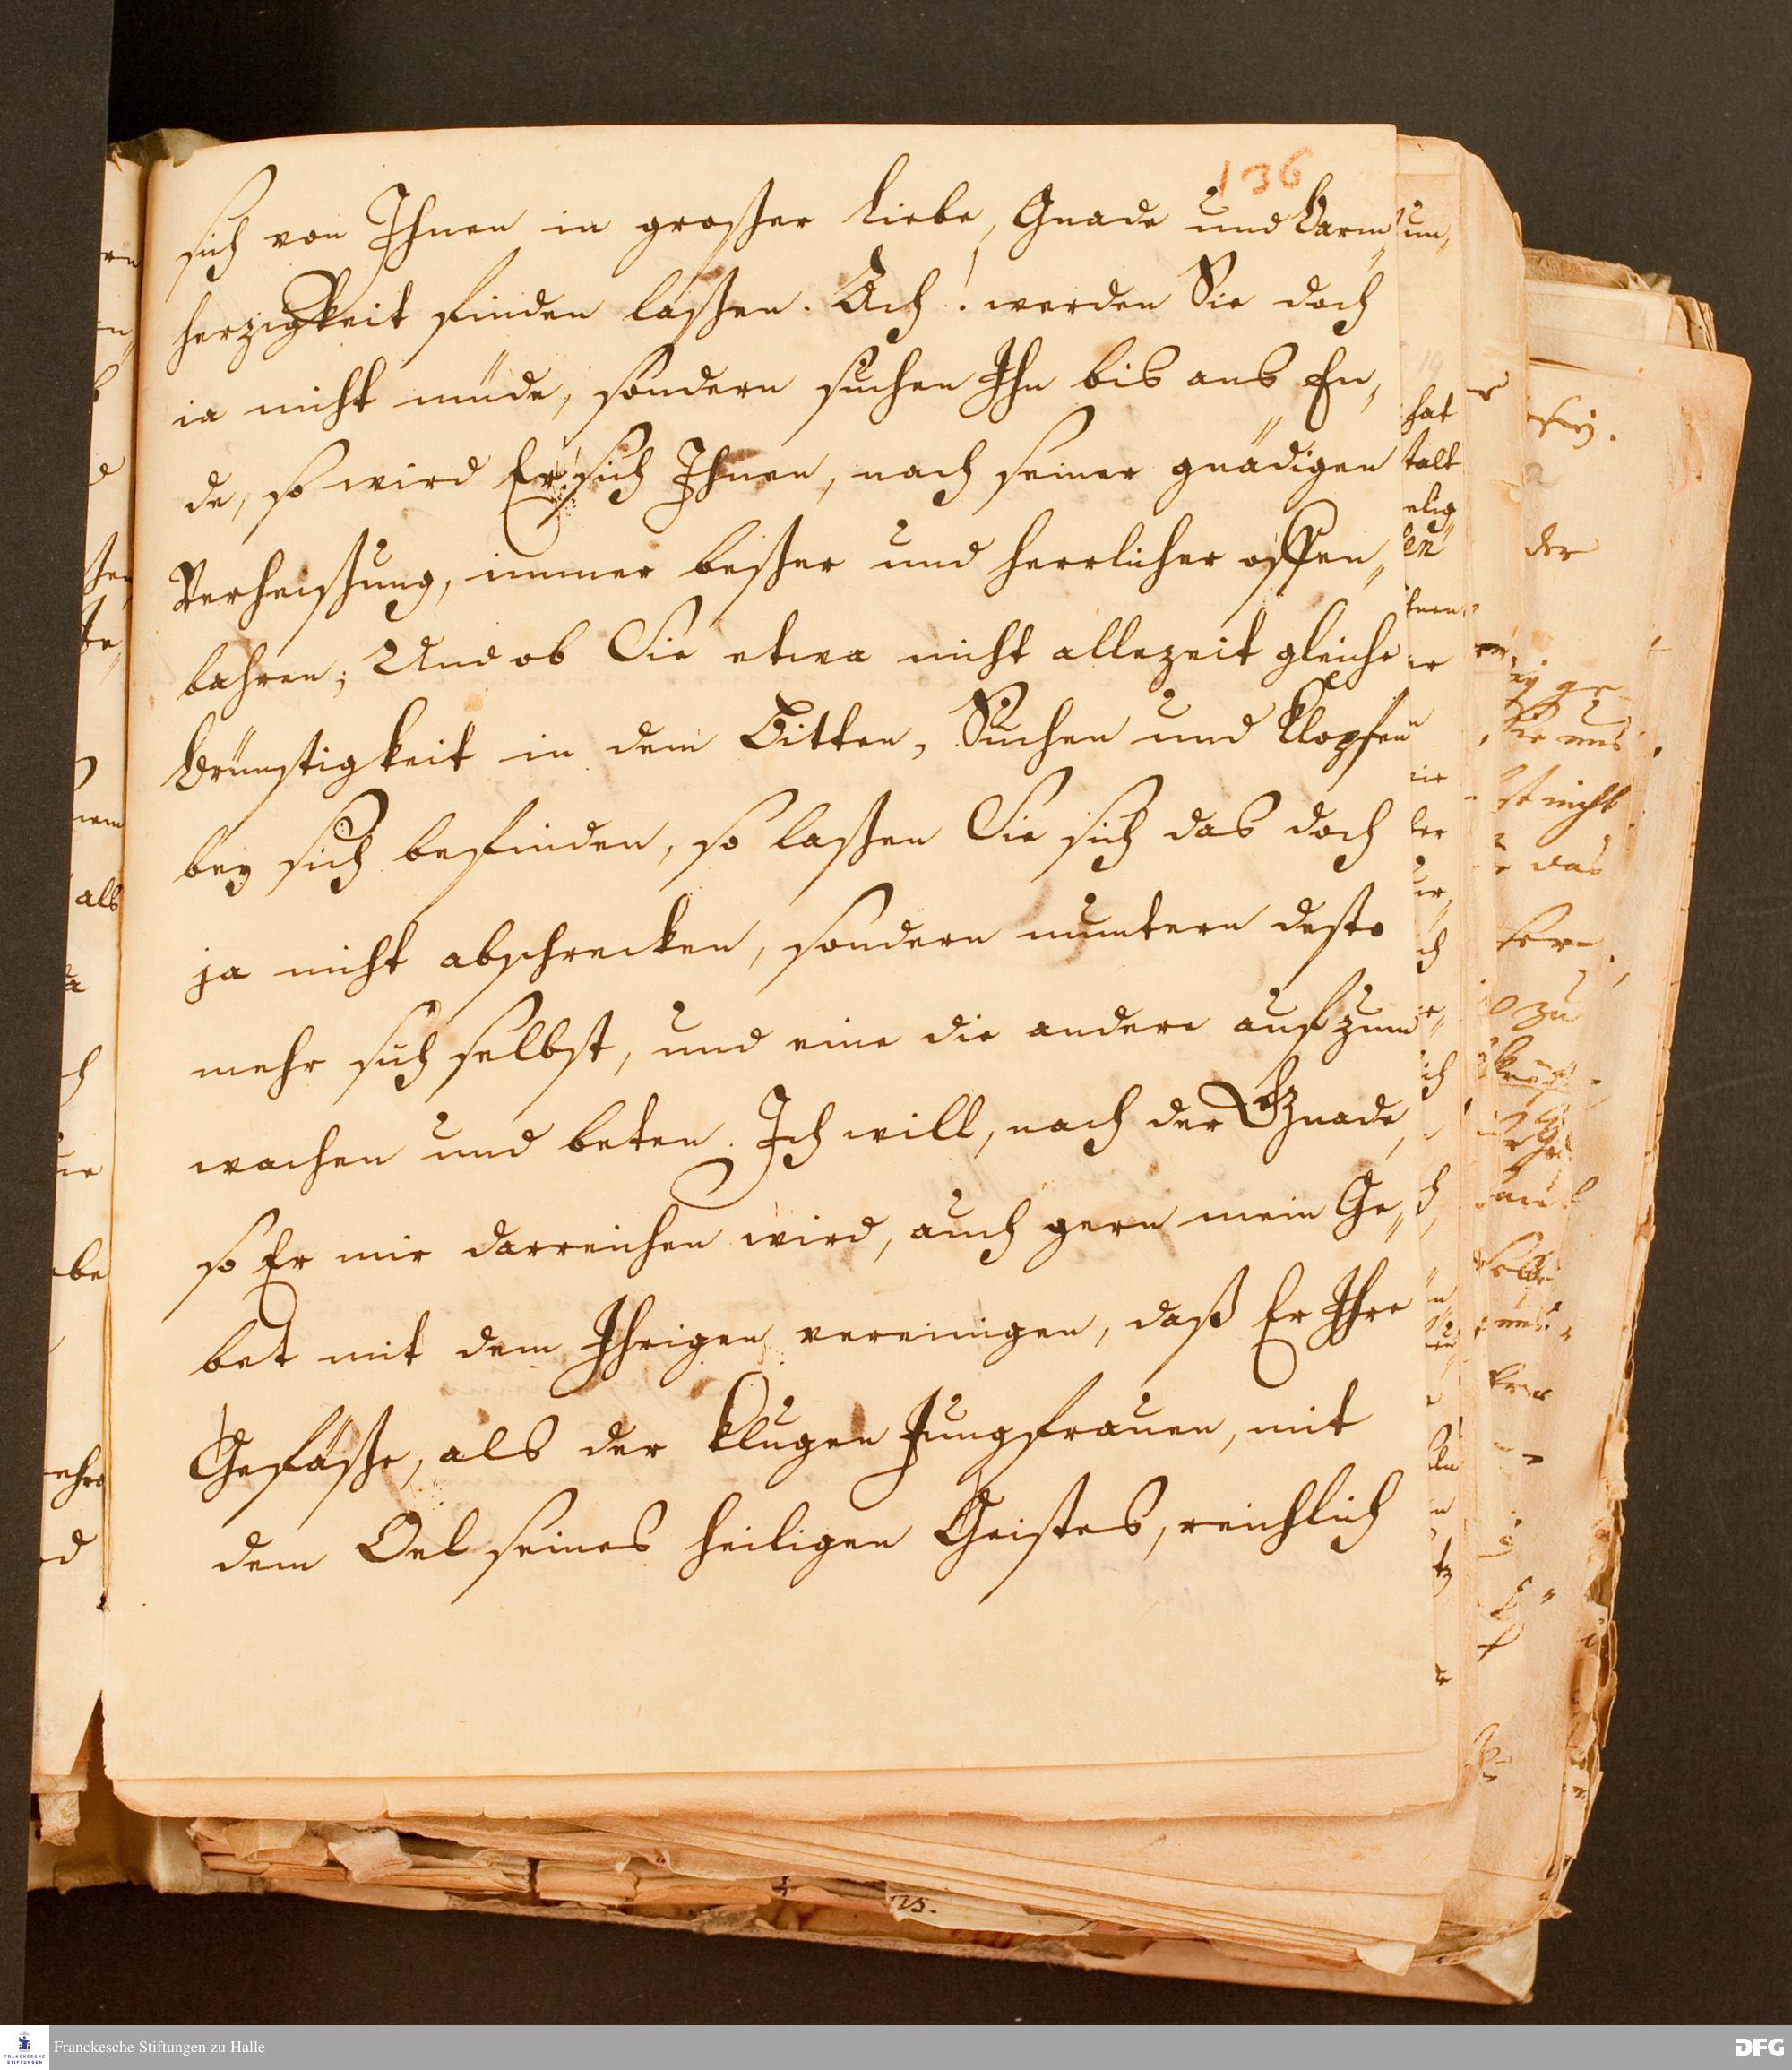 136
sich von Ihnen in großer Liebe, Gnade und Barm„
herzigkeit finden laßen. Ach! werden Sie doch
ia nicht müde, sondern suchen Ihn bis ans En„
de, so wird Er sich Ihnen, nach seiner gnädigen
Verheißung, immer beßer und herrlicher offen„
bahren; Und ob Sie etwa nicht allezeit gleiche
Brünstigkeit in dem Bitten, Suchen und Klopfen
bey sich befinden, so laßen Sie sich das doch
ja nicht abschrecken, sondern muntern desto
mehr sich selbst, und eine die andere auf zum
wachen und beten. Ich will, nach der Gnade,
so Er mir darreichen wird, auch gern mein Ge„
bet mit dem Ihrigen vereinigen, daß Er Ihre
Gefäße, als der klugen Jungfrauen, mit
dem Oel seines heiligen Geistes, reichlich
Franckesche Stiftungen zu Halle
DFG